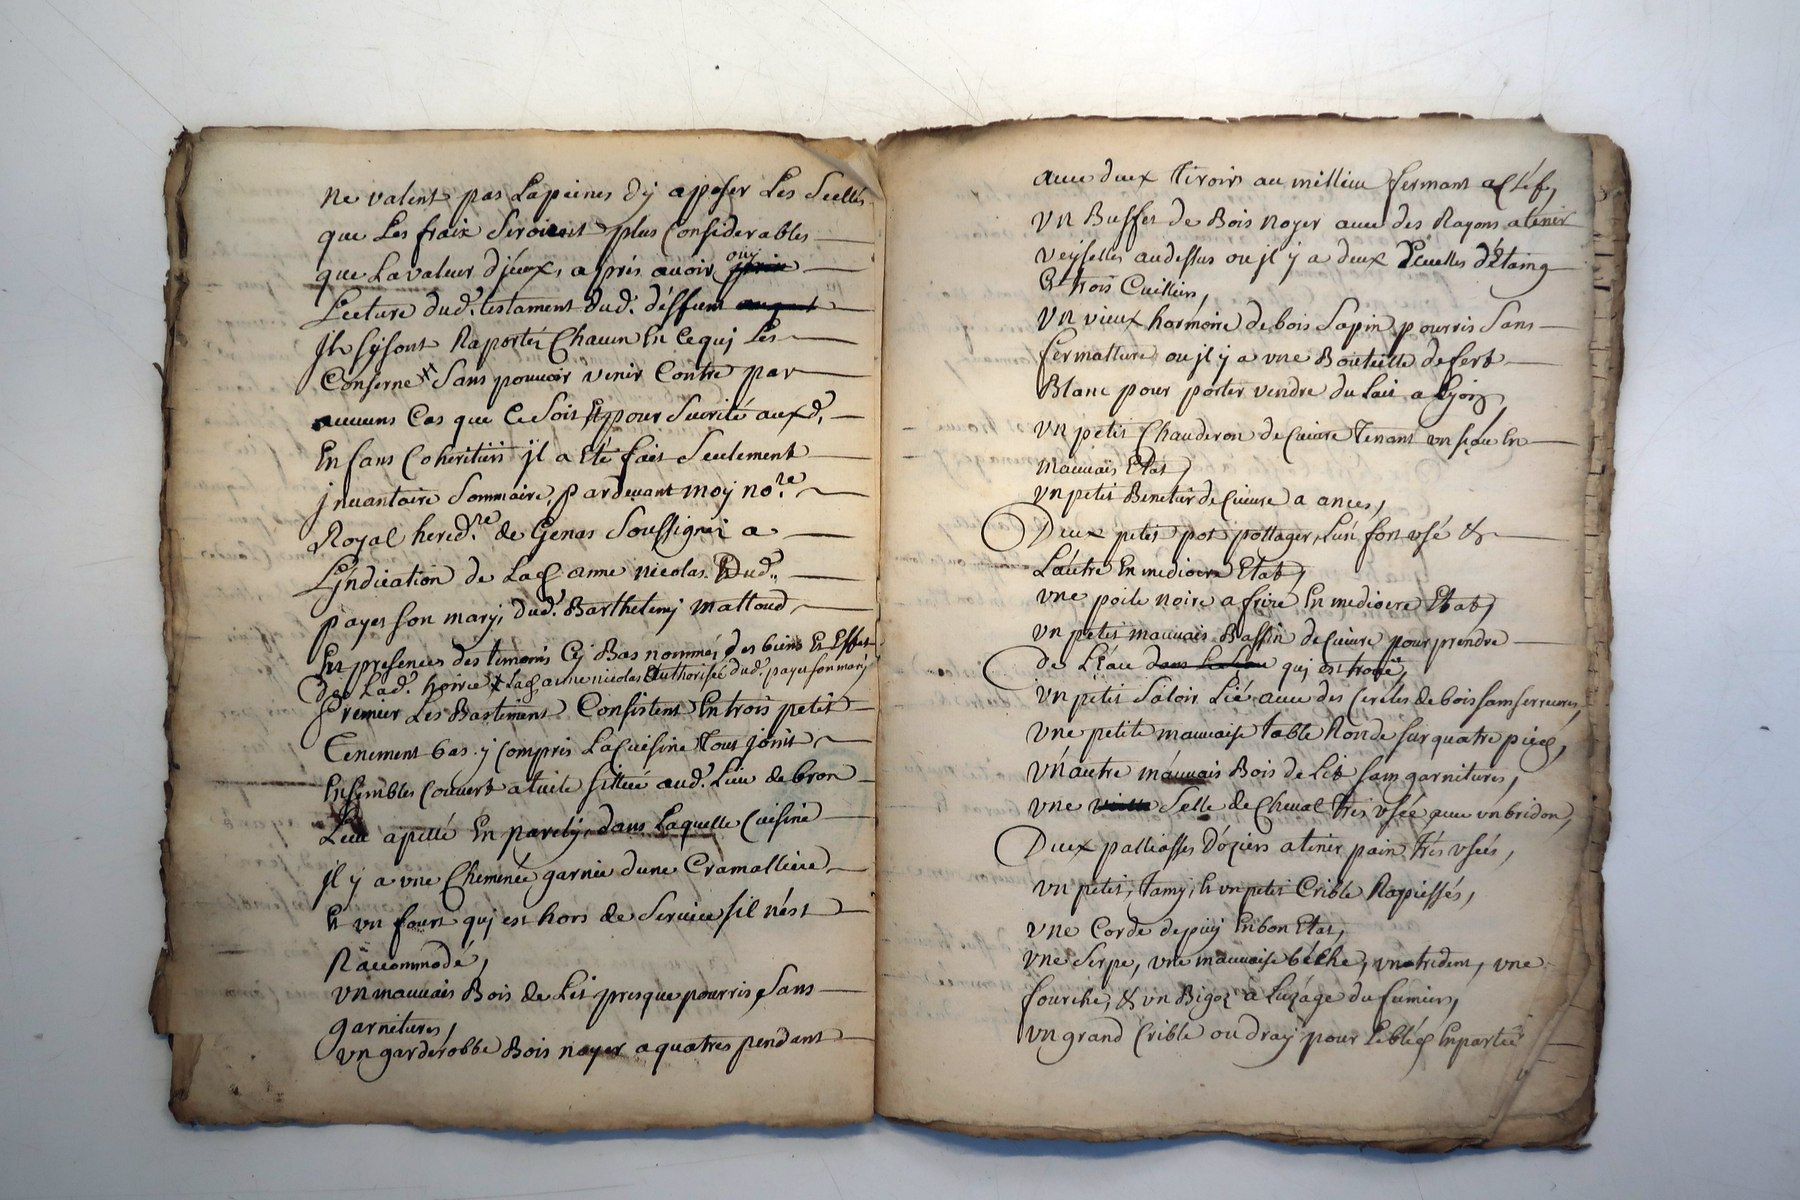 ne valent pas Lapeines dÿ apposer Les Scellés
que Les fraix Seroient plus Considerables
que Lavaleur djceux, aprés avoir ouy
Lecture dud. testament dud. déffunt
Jls sÿ sont Raportés Chacun En Cequj Les
Conserne Sans pouvoir venir Contre par
aucuns Cas que Ce Soit Et pour Seurité auxd.
Enfans Coheritiers jl a Eté fait Seulement
jnvantaire Sommaire, pardevant moÿ no.re
Royal hered.re de Genas Soussigné a
Ljndication de Lad. anne nicolas Dud.
payet son marÿ, dud. Barthelemj mattoud
En presences des temoins Cÿ Bas nommés des biens Et Effets
De Lad. hoirie Lad. anne nicolas Authorisée dud. payet son marj
Premier Les Bastiment Consistent En trois petit
Tenement bas y Compris La Cuisine Tout joint
Ensembles Couvert a tuile sittué aud. Lieu de bron
Lieu apellé En parelÿ, dans Laquelle Cuisine
Jl ÿ a vne Cheminée garnie dune Cramalliere
Et vn fourt quj est hors de Service sil nést
Racommodé,
vn mauvais Bois de Lit presque pourris, Sans
garnitures,
vn garderobbe Bois noyer a quatres pendant
avec deux tiroirs au millieu fermant a Cléf,
vn Buffet de Bois noyer avec des Rayons a tenir
veysselles audessus ou jl ÿ a deux Ecuelles d'Étaing
Et trois Cuilliers,
vn vieux harmoire de bois Sapin pourris Sans
fermatture ou jl ÿ a vne Bouteille de fert
Blanc pour porter vendre du Lait a Lÿon,
vn petit Chauderon de Cuivre Tenant vn seau En
mauvais Etat,
vn petit Benetier de Cuivre a ances,
Deux petits pot pottager, L'un fort vsé &
L'autre En mediocre Etat,
vne poile noire a frire En mediocre Etat,
vn petit mauvais Bassin de Cuivre pour prendre
de L'éau quj est troué,
vn petit Saloir Lié avec des Cercles de bois sans serrures,
vne petite mauvaise table Ronde sur quatre pieds,
vn autre mauvais Bois de Lit sans garnitures,
vne Selle de Cheval très vsée avec vn bridon,
Deux palliasses d'oziers a tenir pain très vsées,
vn petit, tamÿ, & vn petit Crible Rapiessés,
vne Corde de puÿ En bon Etat,
vne Serpe, vne mauvaise béche, vn trident, vne
fourche, & vn Bigoz à Luzage du fumier,
vn grand Crible ou draÿ pour Le bled En partie